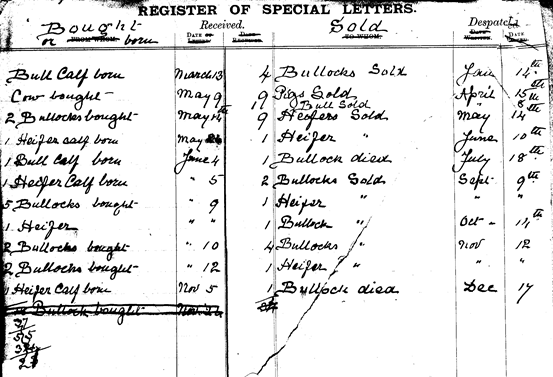 REGISTER OF SPECIAL LETTERS.
Bought Received. Sold Despatch
or FROM WHOM born DATE OF TO WHOM DATE
Bull Calf born March 13 4 Bullocks Sold Jan 14th
Cow bought May 9 9 Pigs Sold April 15th
1 Bull Sold " 8th
2 Bullocks bought May 14th 9 Heifers Sold May 14
1 Heifer calf born May 1 Heifer " June 10th
1 Bull Calf born June 4 1 Bullock died July 18th
1 Heifer Calf born " 5 2 Bullocks Sold Sept 9th
5 Bullocks bought " 9 1 Heifer " "
1 Heifer " " 1 Bullock " Oct 14th
2 Bullocks bought " 10 4 Bullocks " Nov 12
2 Bullocks bought " 12 1 Heifer " "
1 Heifer Calf born Nov 5 1 Bullock died Dec 17
Bullock bought Nov
37
55